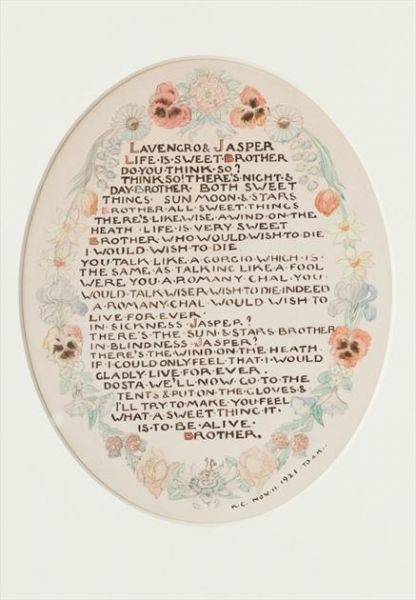 LAVENGRO & JASPER
LIFE·IS·SWEET·BROTHER
DO·YOU·THINK·SO?
THINK·SO! THERE'S·NIGHT·&
DAY·BROTHER· BOTH SWEET
THINGS· SUN MOON·& STARS
BROTHER·ALL·SWEET·THINGS
THERE'S·LIKEWISE·A·WIND·ON·THE
HEATH·LIFE·IS·VERY SWEET
BROTHER WHO·WOULD·WISH·TO·DIE
I·WOULD·WISH·TO·DIE
YOU·TALK·LIKE·A·GORGIO·WHICH·IS·
THE·SAME·AS·TALKING LIKE·A FOOL
WERE·YOU·A·ROMANY·CHAL·YOU·
WOULD·TALK·WISER·WISH·TO·DIE·INDEED
A·ROMANY·CHAL·WOULD·WISH·TO
LIVE·FOR·EVER·
IN·SICKNESS·JASPER?
THERE'S·THE·SUN·& STARS·BROTHER
IN·BLINDNESS·JASPER?
THERE'S·THE·WIND·ON·THE·HEATH·
IF·I·COULD·ONLY·FEEL·THAT·I·WOULD
GLADLY·LIVE·FOR·EVER·
DOSTA·WE'LL·NOW·GO·TO·THE
TENTS & PUT·ON·THE·GLOVES·&
I'LL·TRY·TO·MAKE·YOU·FEEL
WHAT·A·SWEET·THING·IT·
IS·TO·BE·ALIVE·
BROTHER.
NOV·11·1921·TO